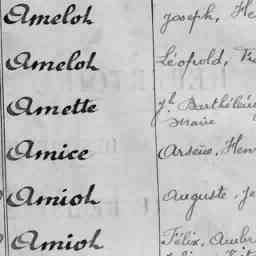 Ameloh Joseph, He
Ameloh Léopold,
Amette Jh Barthélémy
Marie
Amice Arsène, Hen
Amioh Auguste, Je
Amioh Félix, Ambr